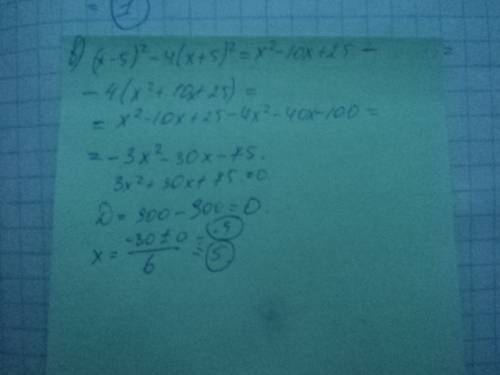 = 1
б) (x-5)² - 4(x+5)² = x² - 10x + 25 - =
- 4(x² + 10x + 25) =
= x² - 10x + 25 - 4x² - 40x - 100 =
= - 3x² - 30x - 75.
3x² + 30x + 75 = 0.
D = 900 - 900 = 0.
x = (-30 ± 0)/6 = -5
= 5